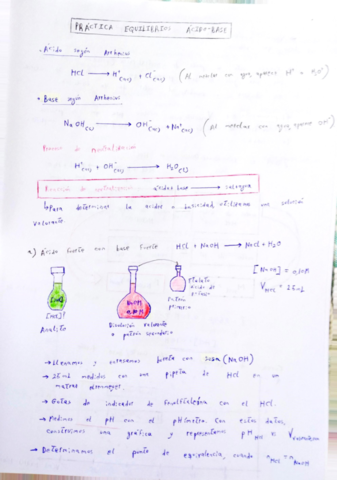 PRÁCTICA EQUILIBRIOS ÁCIDO-BASE
• Ácido según Arrhenius
HCl ⟶ H⁺(ac) + Cl⁻(ac) (Al mezclar con agua, aparece H⁺ o H₃O⁺)
• Base según Arrhenius
NaOH(s) ⟶ OH⁻(ac) + Na⁺(ac) (Al mezclar con agua, aparece OH⁻)
Reacción de neutralización
H⁺(ac) + OH⁻(ac) ⟶ H₂O(l)
Reacción de neutralización ácido + base ⟶ sal + agua
↳ Para determinar la acidez o basicidad utilizamos una solución
valorante.
a) Ácido fuerte con base fuerte HCl + NaOH ⟶ NaCl + H₂O
[NaOH] =
V HCl = 25 mL
[HCl]
[HCl]?
Analito
NaOH
Ftalato
ácido de
potasio
Patrón
primario
Disolución valorante
o patrón secundario
→ Llenamos y enrasamos bureta con sosa (NaOH)
→ 25 mL medidos con una pipeta de HCl en un
matraz erlenmeyer.
→ Gotas de indicador de fenolftaleína con el HCl.
→ Medimos el pH con el pHmetro. Con estos datos,
construimos una gráfica y representamos pH
→ Determinamos el punto de equivalencia, cuando n HCl = n NaOH